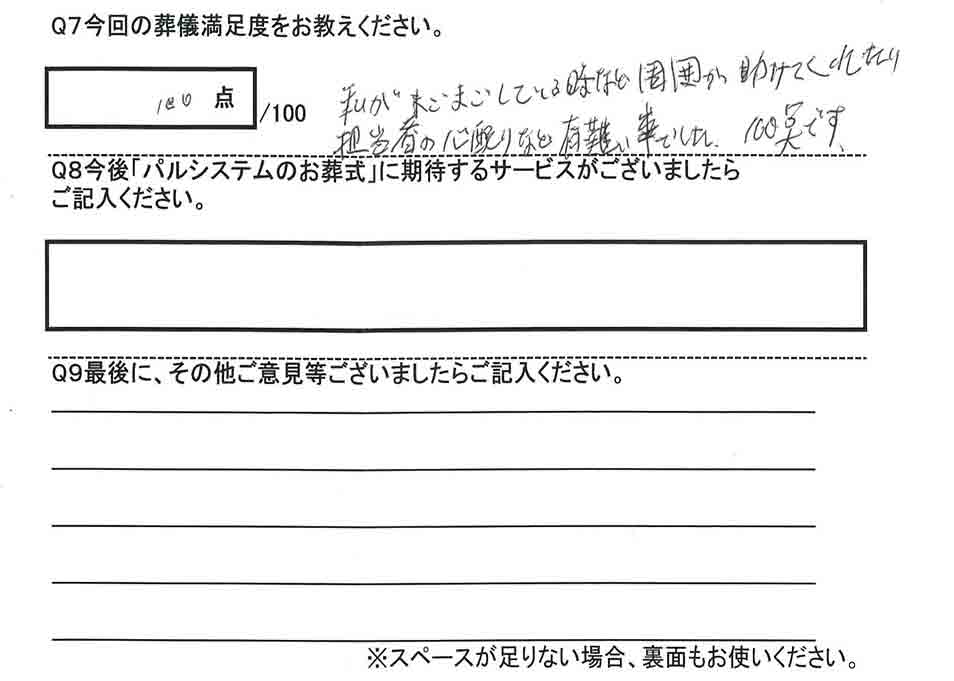 Q7今回の葬儀満足度をお教えください。
100 点 /100
私がまごまごしている時など周囲から助けてくれたり
担当者の心配りなど有難い事でした。100点です。
Q8今後「パルシステムのお葬式」に期待するサービスがございましたら
ご記入ください。
Q9最後に、その他ご意見等ございましたらご記入ください。
※スペースが足りない場合、裏面もお使いください。